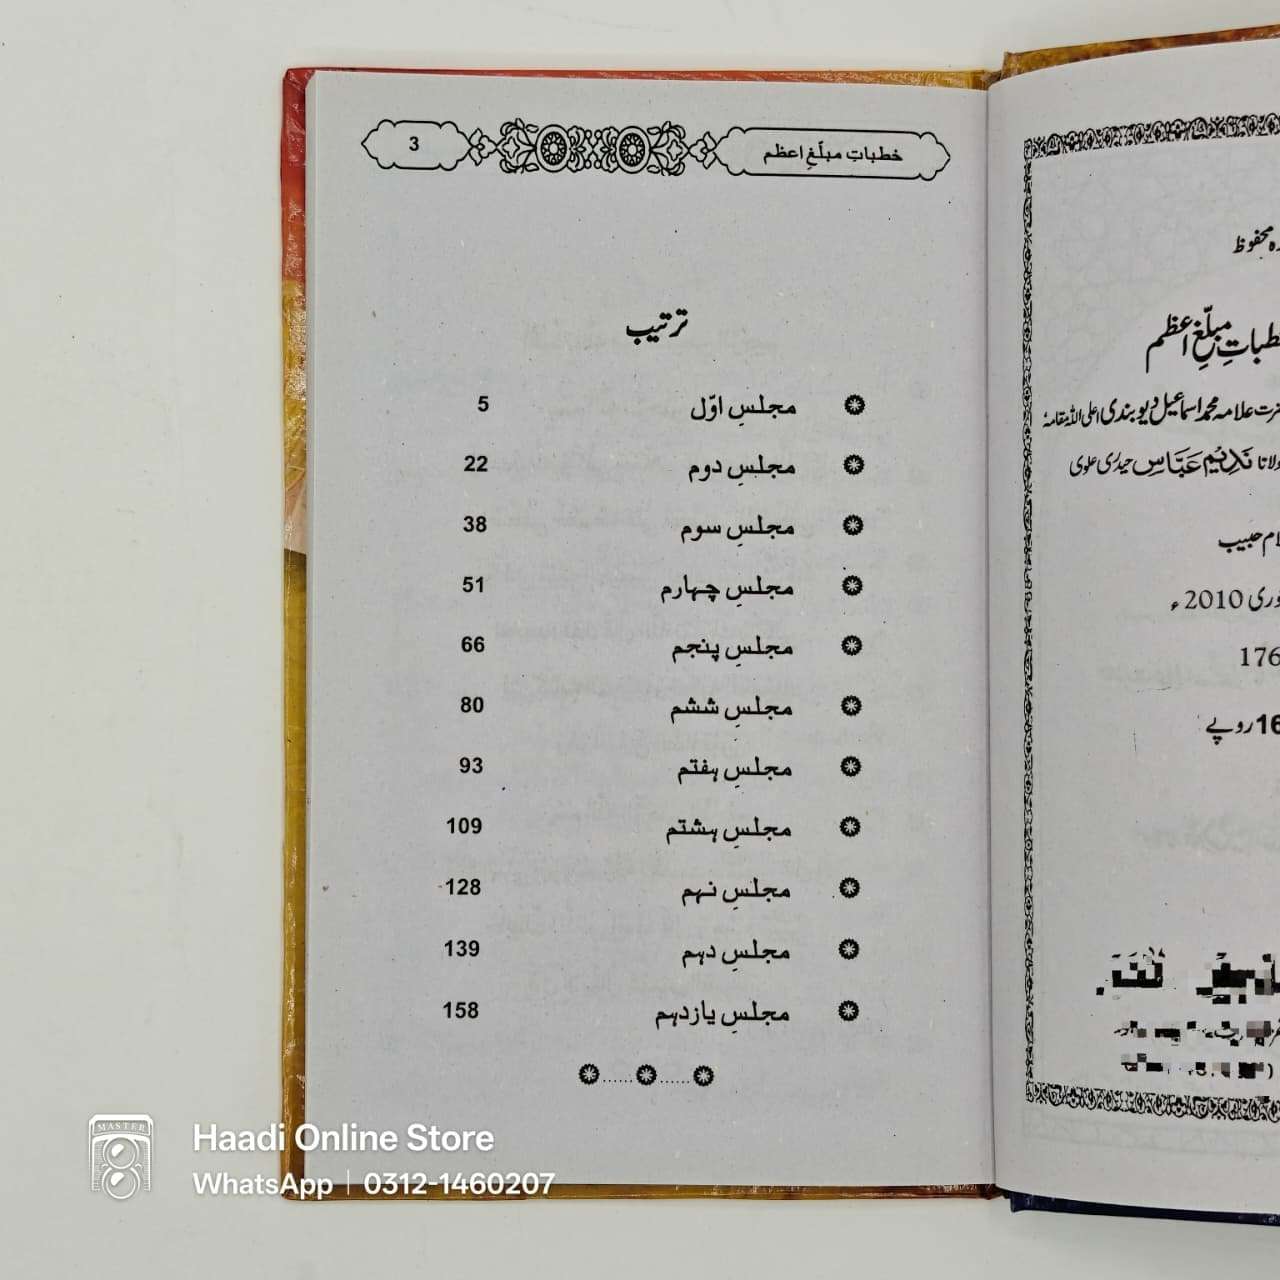 خطباتِ مبلّغِ اعظم 3
ترتیب
مجلسِ اوّل 5
مجلسِ دوم 22
مجلسِ سوم 38
مجلسِ چہارم 51
مجلسِ پنجم 66
مجلسِ ششم 80
مجلسِ ہفتم 93
مجلسِ ہشتم 109
مجلسِ نہم 128
مجلسِ دہم 139
مجلسِ یازدہم 158
محفوظ
مبلّغِ اعظم
علامہ محمد اسماعیل دیوبندی اعلی اللہ مقامہٗ
ندیم عبّاس حیدری علوی
حبیب
2010ء
176
روپے
MASTER
Haadi Online Store
WhatsApp | 0312-1460207